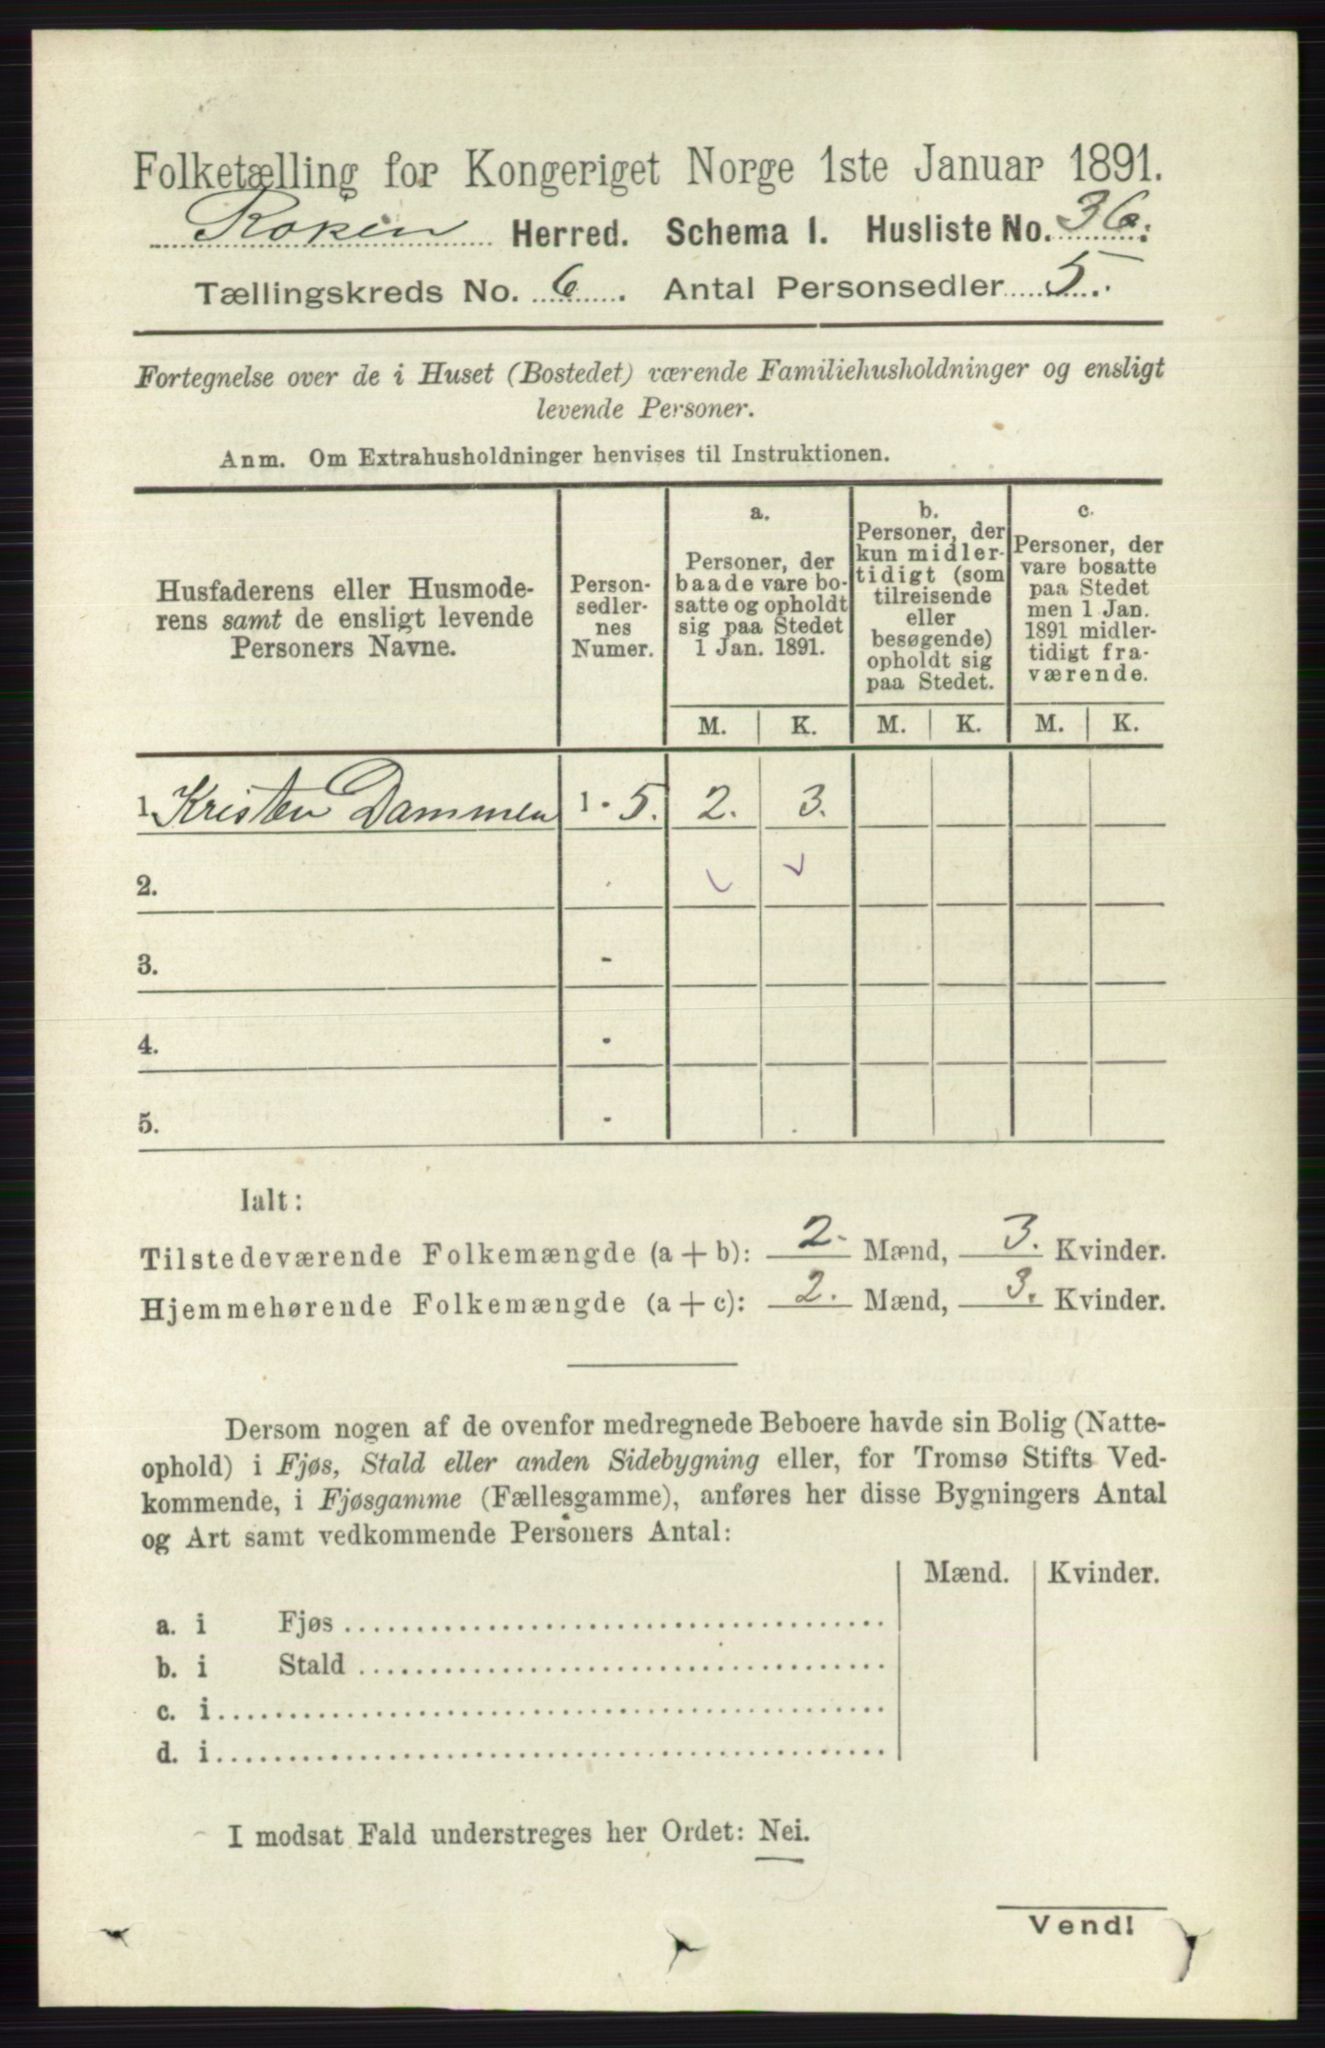 Folketælling for Kongeriget Norge 1ste Januar 1891.
Røken Herred. Schema I. Husliste No. 36.
Tællingskreds No. 6. Antal Personsedler 5.
Fortegnelse over de i Huset (Bostedet) værende Familiehusholdninger og ensligt
levende Personer.
Anm. Om Extrahusholdninger henvises til Instruktionen.
Husfaderens eller Husmode-
rens samt de ensligt levende
Personers Navne.
Person-
sedler-
nes
Numer.
a.
Personer, der
baade vare bo-
satte og opholdt
sig paa Stedet
1 Jan. 1891.
b.
Personer, der
kun midler-
tidigt (som
tilreisende
eller
besøgende)
opholdt sig
paa Stedet.
c.
Personer, der
vare bosatte
paa Stedet
men 1 Jan.
1891 midler-
tidigt fra-
værende.
M. K. M. K. M. K.
1. Kristen Dammen 1 - 5. 2. 3.
2.
3. -
4. -
5. -
Ialt:
Tilstedeværende Folkemængde (a + b): 2. Mænd, 3. Kvinder.
Hjemmehørende Folkemængde (a + c): 2. Mænd, 3. Kvinder.
Dersom nogen af de ovenfor medregnede Beboere havde sin Bolig (Natte-
ophold) i Fjøs, Stald eller anden Sidebygning eller, for Tromsø Stifts Ved-
kommende, i Fjøsgamme (Fællesgamme), anføres her disse Bygningers Antal
og Art samt vedkommende Personers Antal:
Mænd. Kvinder.
a. i Fjøs
b. i Stald
c. i
d. i
I modsat Fald understreges her Ordet: Nei.
Vend!